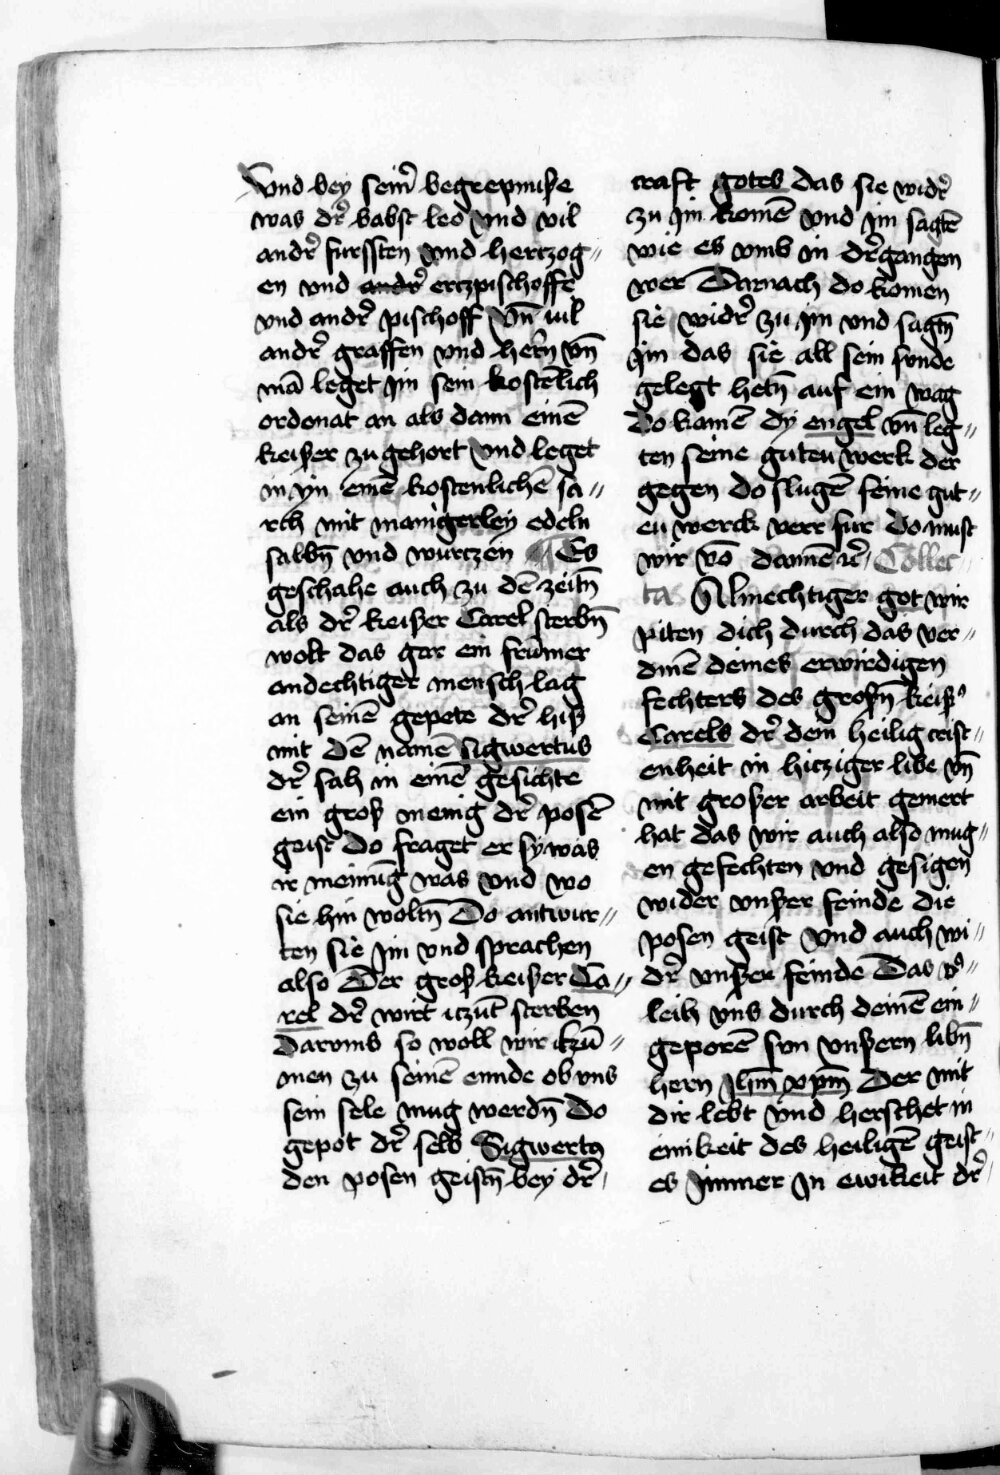 Vnd bey seim̄ begrepnuße
was dr̄ babst leo vnd vil
andr̄ furssten vnd hertzog〃
en vnd andr̄ ertzpischoffe
vnd andr̄ pischoff vn̄ uil
andr̄ graffen vnd hern̄ vn̄
mā leget jm sein kostēlich
ordonat an als dann einē
keißer zu gehort vnd leget
in yn einē kostenlichē sa〃
rch mit manigerley edeln
salbn̄ vnd wurtzein Es
geschahe auch zu dē zeitn̄
als dr̄ keißer Carel sterbn̄
wolt das gar ein frūmer
andechtiger mensch lag
an seinē gepete dr̄ hiß
mit dē namē sigwertus
dr̄ sah in einē gesichte
ein groß menig dr̄ posē
geist Do fraget er sy was
ir meinūg was vnd wo
sie hin woltn̄ Do antwur〃
ten sie jm vnd sprachen
also Der groß keißer Ca〃
rel dr̄ wirt iczūt sterben
Darvmb so woll wir kūm̄〃
men zu seinē ennde ob vns
sein sele mug werdn̄ Do
gepot dr̄ selb Sigwertꝯ
den posen geistn̄ bey dr̄
craft gotes das sie widr̄
zu jm komē vnd jm sagtē
wie es vmb in dr̄gangen
wer Darnach do komen
sie widr̄ zu jm vnd sagtn̄
jm das sie all sein sunde
gelegt hetn̄ auf ein wag
Do kamē dy engel vn̄ leg〃
ten seine guten werk der
gegen do slugē seine gut〃
en werck verr fur Do must
wir vō dannē rc̄ Collec
ta Almechtiger got wir
piten dich durch das ver〃
dinē deines erwirdigen
fechters des großn̄ keißꝰ
Carels dr̄ dein heilig crist〃
enheit in hicziger libe vn̄
mit großer arbeit gemert
hat das wir auch also mug〃
en gefechten vnd gesigen
wider vnßer feinde die
posen geist vnd auch wi〃
dr̄ vnßer feinde Das vꝰ〃
leih vns durch deinē ein〃
geporē sun vnßern libn̄
hern Jhm̄ xpm̄ Der mit
dir lebt vnd herschet in
einikeit des heiligē geist〃
es jmmer jn ewikeit dr̄